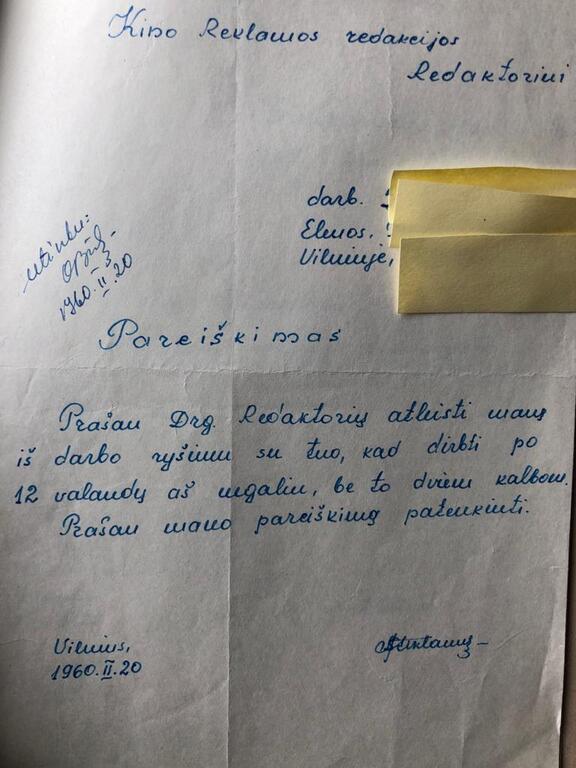 Kino Reklamos redakcijos
Redaktoriui
darb.
Elmos.
Vilniuje,
utinku:
1960.II.20
Pareiškimas
Prašau Drg. Redaktorių atleisti mane
iš darbo ryšium su tuo, kad dirbti po
12 valandų aš negaliu, be to dviem kalbom.
Prašau mano pareiškimą patenkinti.
Vilnius,
1960.II.20